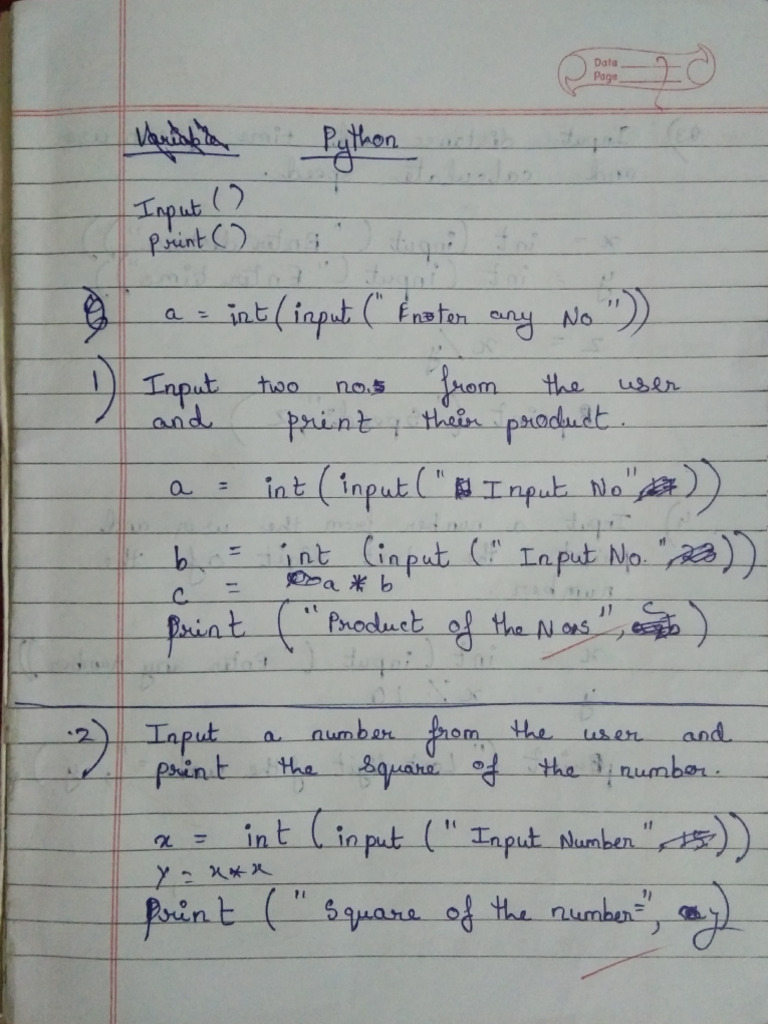 Data
Page 7
Variable Python
Input ()
print ()
a = int (input (" Enter any No "))
1) Input two no.s from the user
and print their product.
a = int (input (" Input No" ))
b = int (input (" Input No." ))
c = a * b
Print ("Product of the Nos", c)
2) Input a number from the user and
print the square of the number.
x = int (input (" Input Number" ))
y = x * x
Print (" Square of the number=", y)